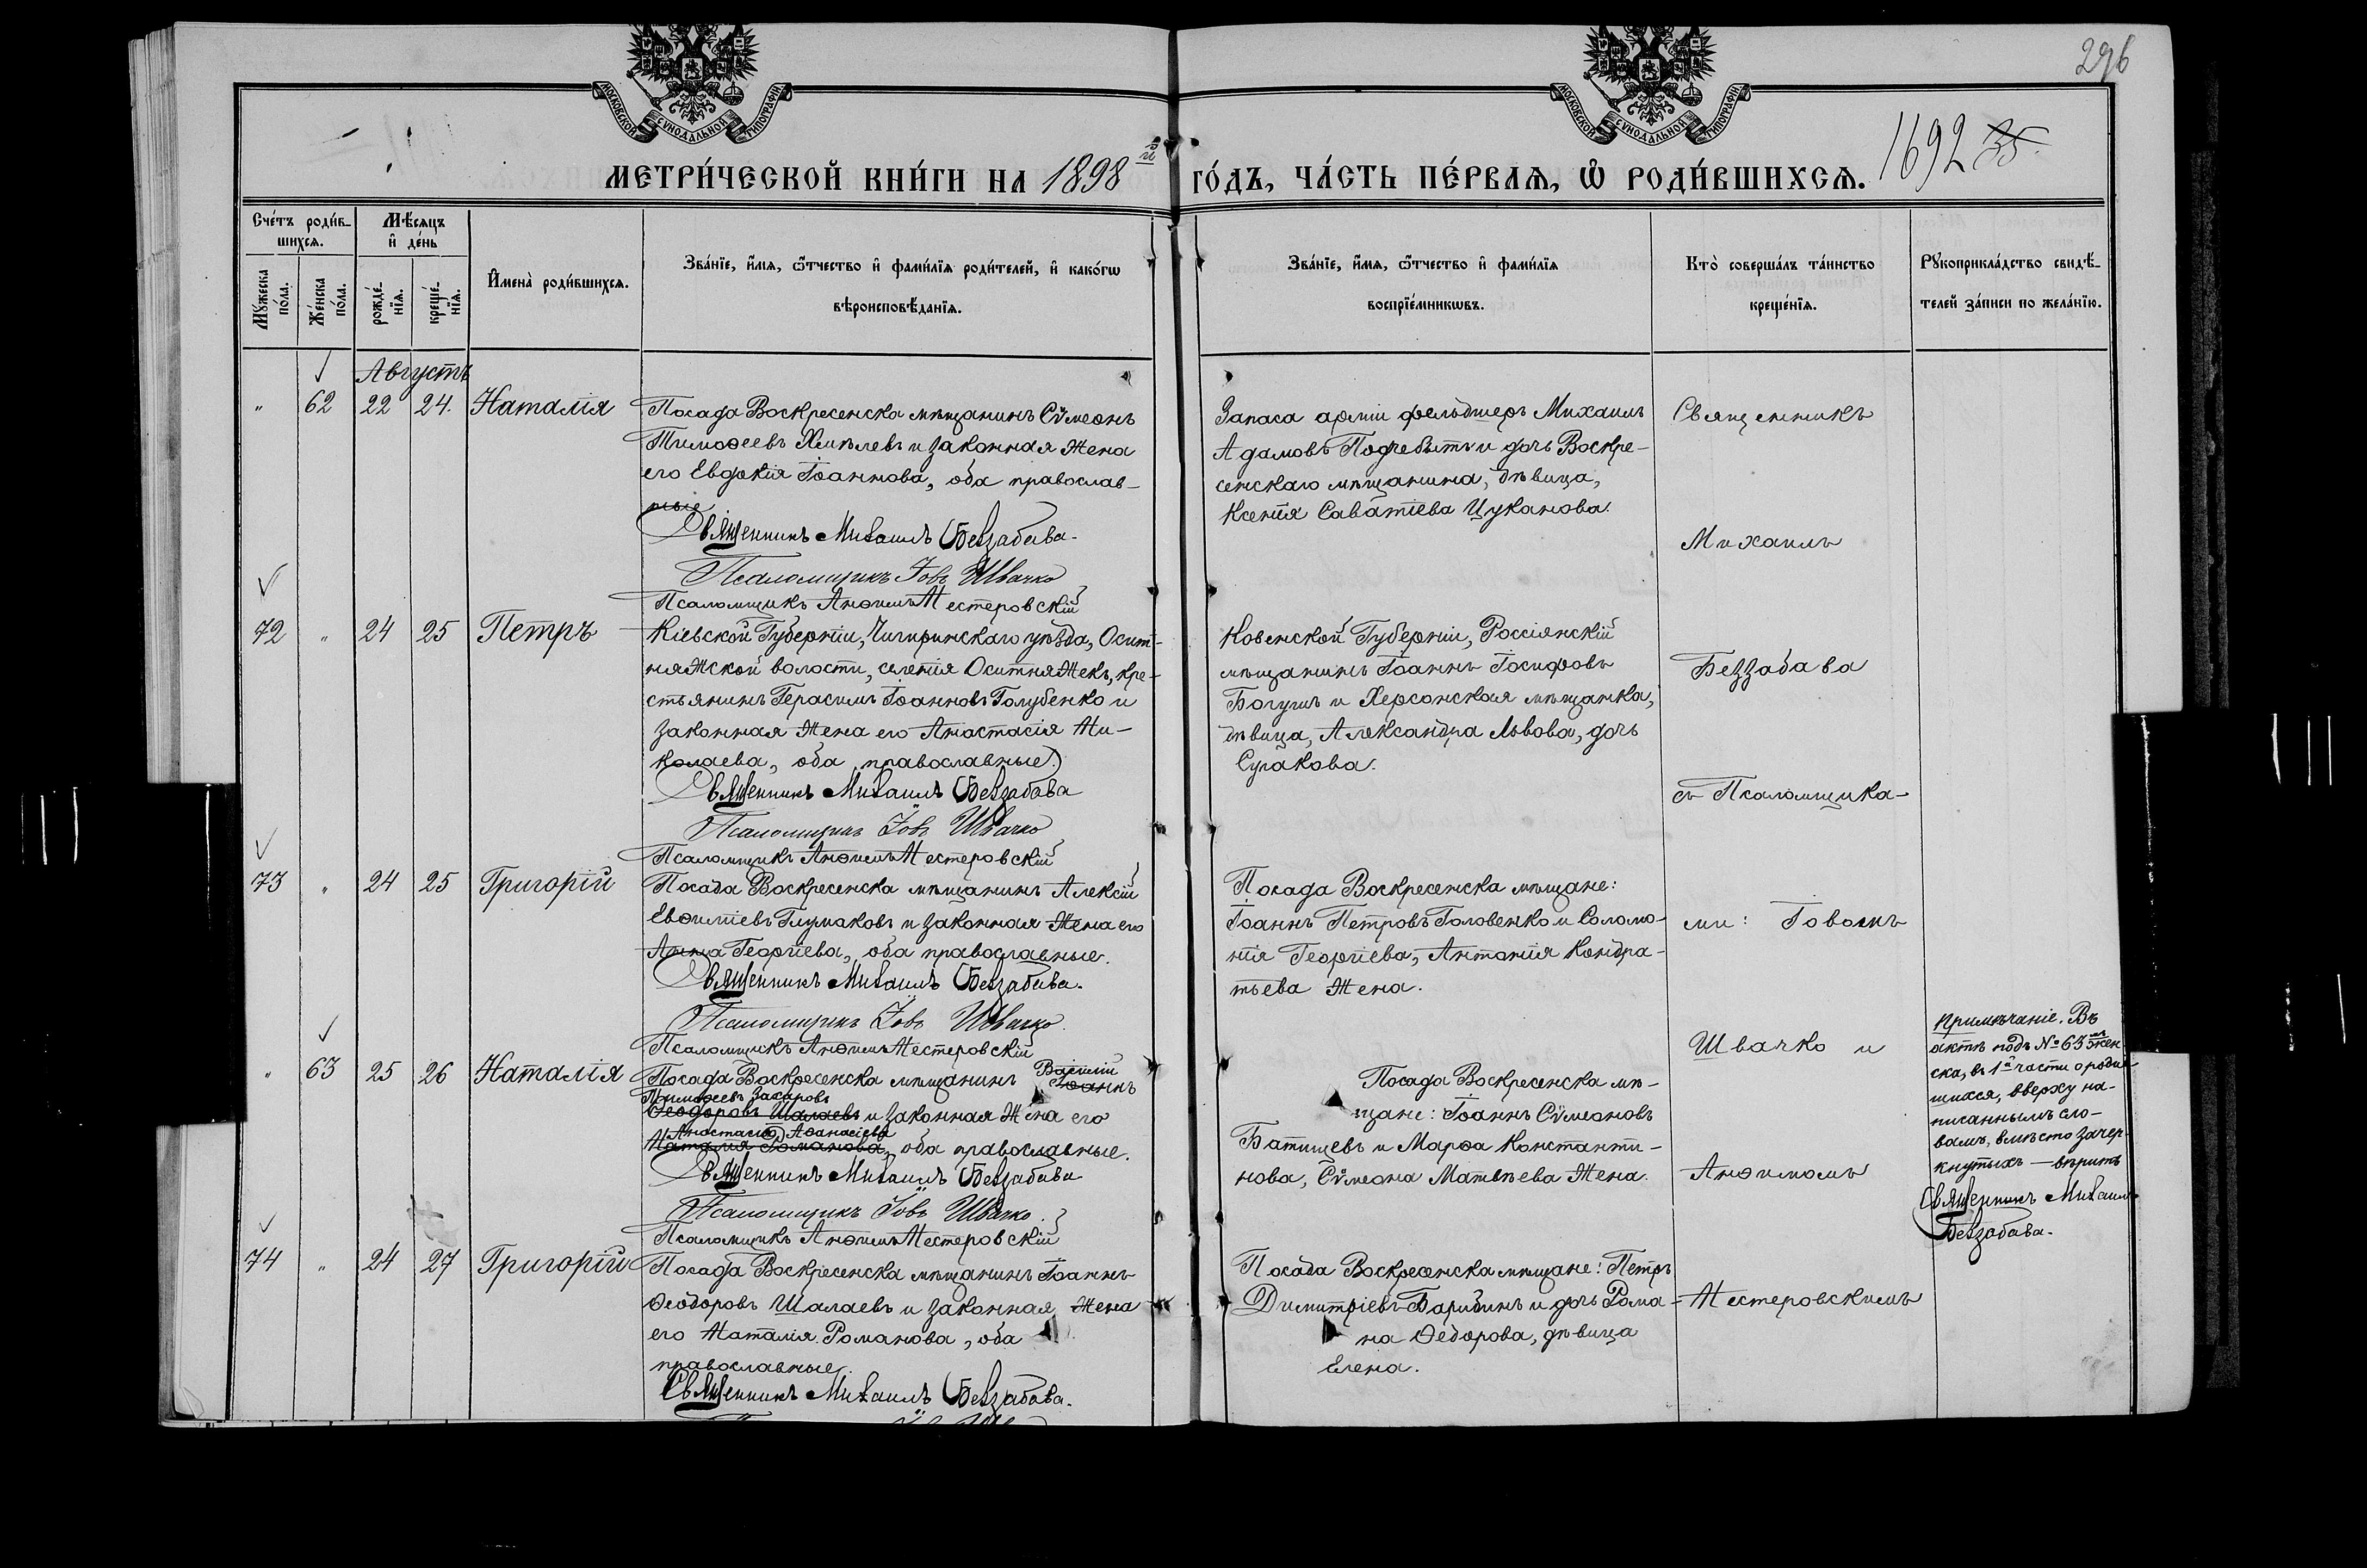 296
МОСКОВСКОЙ СѴНОДАЛЬНОЙ ТИПОГРАФІИ
МОСКОВСКОЙ СѴНОДАЛЬНОЙ ТИПОГРАФІИ
МЕТРИ́ЧЕСКОЙ КНИ́ГИ НА 1898й ГО́ДЪ, ЧА́СТЬ ПЕ́РВАѦ, Ѡ РОДИ́ВШИХСѦ.
1692 35.
Сче́тъ роди́в-
шихсѧ.
Мѣ́сяцъ
и де́нь
Мꙋ́жеска по́ла.
Же́нска по́ла.
рожде́-
нїѧ.
креще́-
нїѧ.
Имена̀ роди́вшихсѧ.
Зва́нїе, и́мѧ, ѻ́тчество и фами́лїѧ роди́телей, и како́гѡ
вѣроисповѣ́данїѧ.
Зва́нїе, и́мѧ, ѻ́тчество и фами́лїѧ
воспрїе́мникѡвъ.
Кто̀ соверша́лъ та́инство
креще́нїѧ.
Рꙋкоприкла́дство свидѣ́-
телей за́писи по жела́нїю.
Августъ
" 62 22 24. Наталія
Посада Воскресенска мѣщанинъ Сѵмеонъ
Тимоѳеевъ Хмѣлевъ и законная жена
его Евдокія Іоаннова, оба православ-
ные
Священникъ Михаилъ Беззабава.
Псаломщикъ Іовъ Швачко
Псаломщикъ Анѳимъ Нестеровскій
Запаса арміи фельдшеръ Михаилъ
Адамовъ Подчебытъ и дочь Воскре-
сенскаго мѣщанина, дѣвица,
Ксенія Саватіева Цуканова.
Священникъ
Михаилъ
72 " 24 25 Петръ
Кіевской Губерніи, Чигиринскаго уѣзда, Осит-
няжской волости, селенія Оситняжекъ, кре-
стьянинъ Герасимъ Іоанновъ Голубенко и
законная жена его Анастасія Ни-
колаева, оба православные.
Священникъ Михаилъ Беззабава
Псаломщикъ Іовъ Швачко
Псаломщикъ Анѳимъ Нестеровскій
Ковенской Губерніи, Россіянскій
мѣщанинъ Іоаннъ Іосифовъ
Богушъ и Херсонская мѣщанка,
дѣвица, Александра Львова, дочь
Сулакова.
Беззабава
съ Псаломщика-
73 " 24 25 Григорій
Посада Воскресенска мѣщанинъ Алексій
Евѳиміевъ Глумаковъ и законная жена его
Анна Георгіева, оба православные.
Священникъ Михаилъ Беззабава.
Псаломщикъ Іовъ Швачко.
Псаломщикъ Анѳимъ Нестеровскій
Посада Воскресенска мѣщане:
Іоаннъ Петровъ Головенко и Соломо-
нія Георгіева, Антонія Кондра-
тьева жена.
ми: Іовомъ
Швачко и
" 63 25 26 Наталія
Посада Воскресенска мѣщанинъ Іоаннъ
Василій
Тимоѳеевъ Захаровъ
Ѳеодоровъ Шалаевъ и законная жена его
Анастасія Аѳанасіева
Наталія Романова, оба православные.
Священникъ Михаилъ Беззабава
Псаломщикъ Іовъ Швачко.
Псаломщикъ Анѳимъ Нестеровскій
Посада Воскресенска мѣ-
щане: Іоаннъ Сѵмеоновъ
Батищевъ и Марѳа Константи-
нова, Сѵмеона Матвѣева жена.
Анѳимомъ
Примѣчаніе. Въ
актѣ подъ № 63мъ жен-
ска, въ 1й части о родив-
шихся, вверху на-
писаннымъ сло-
вамъ, вмѣсто зачер-
кнутыхъ — вѣрить
Священникъ Михаилъ
Беззабава.
74 " 24 27 Григорій
Посада Воскресенска мѣщанинъ Іоаннъ
Ѳеодоровъ Шалаевъ и законная жена
его Наталія Романова, оба
православные.
Священникъ Михаилъ Беззабава.
Посада Воскресенска мѣщане: Петръ
Димитріевъ Барибинъ и дочь Рома-
на Ѳедорова, дѣвица
Елена.
Нестеровскимъ